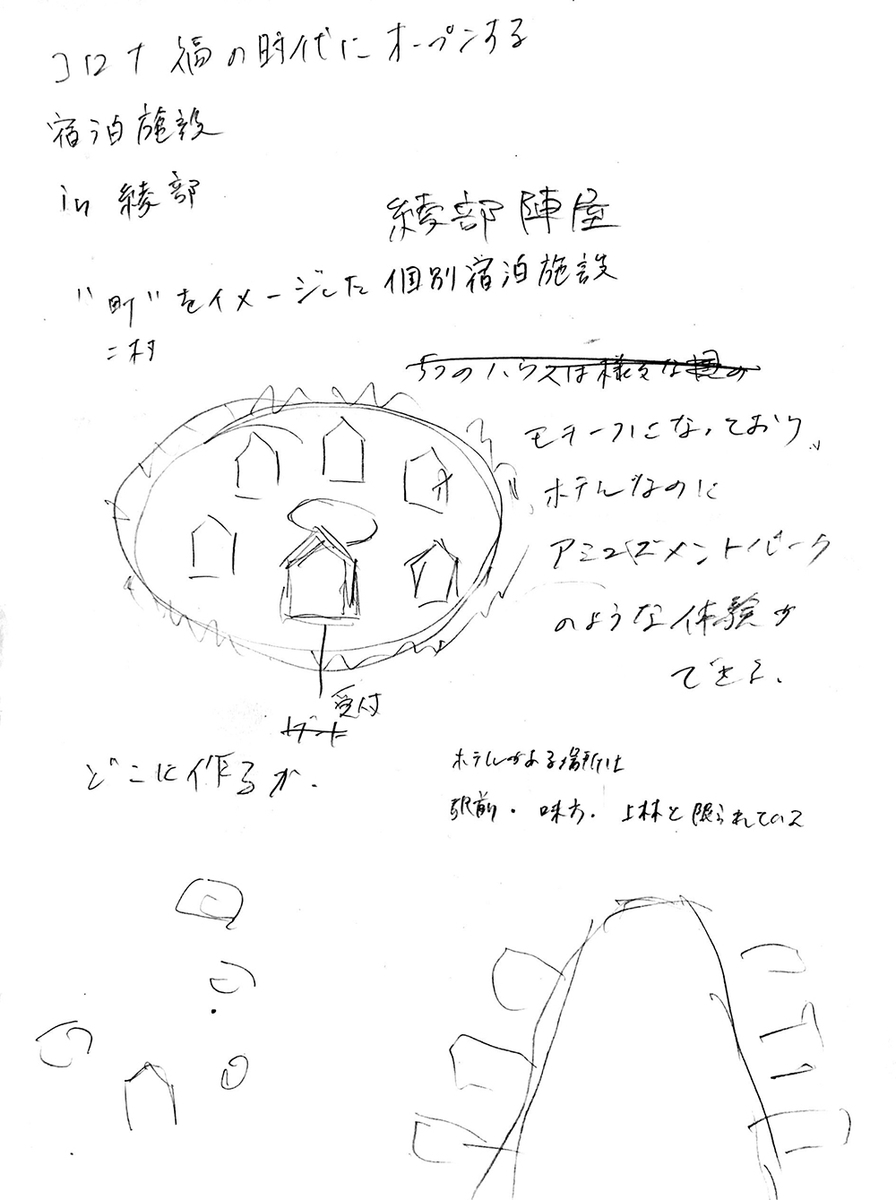 コロナ福の時代にオープンする
宿泊施設
in 綾部
綾部陣屋
"町"をイメージした個別宿泊施設
=村
5つのハウスは様々な
モチーフになっており、
ホテルなのに
アミューズメントパーク
のような体験が
できる.
受付
ゲート
どこに作るか.
ホテルがある場所は
駅前・味方・上林と限られている